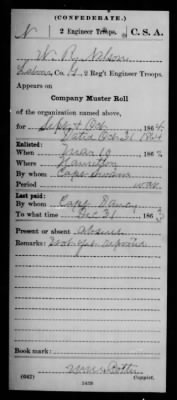 (CONFEDERATE.)
N | 2 Engineer Troops. | C. S. A.
W. R. Nelson
Co. , 2 Reg't Engineer Troops.
Appears on
Company Muster Roll
of the organization named above,
for Sept & Oct, 1864.
Dated Oct 31 1864
Enlisted:
When 10, 186
Where Hamilton
By whom Capt
Period war
Last paid:
By whom Capt
To what time Dec 31, 1863
Present or absent Absent
Remarks: Not yet reported
Book mark:
(642) Copyist.